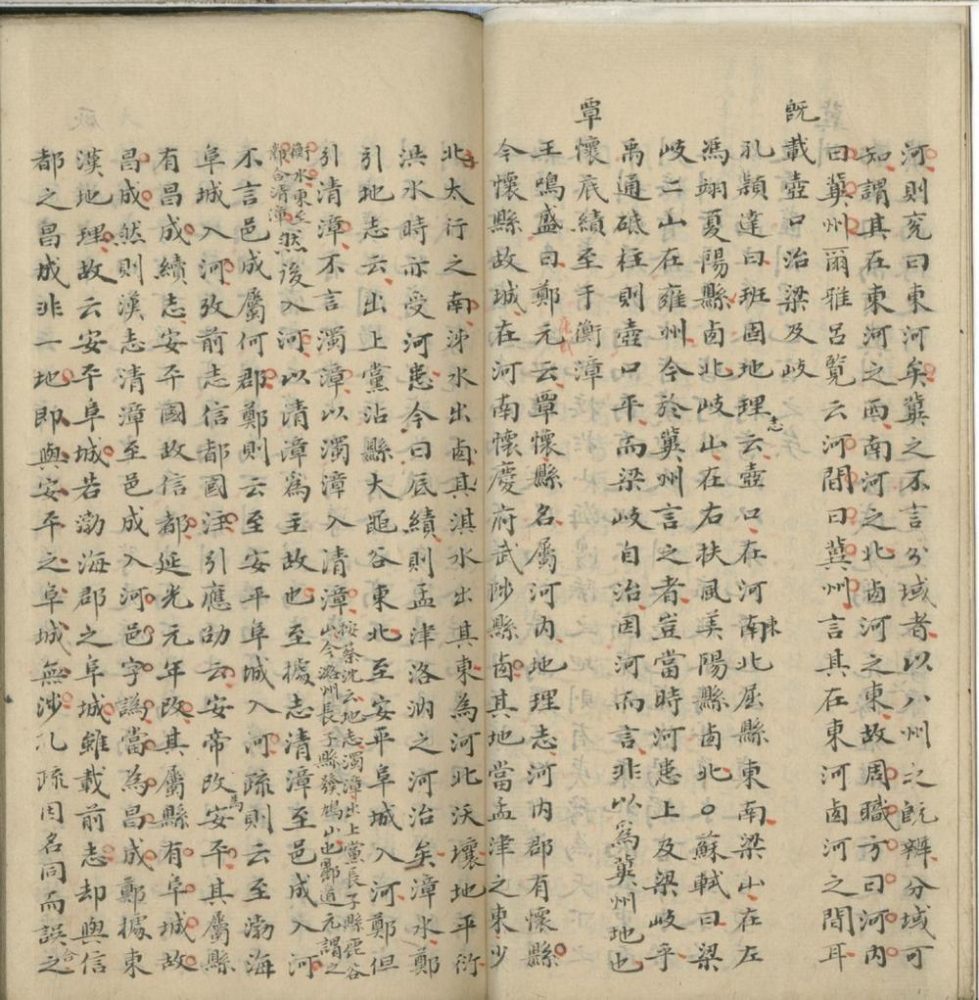 河則兗曰東河矣冀之不言分域者以八州之既辨分域可
知謂其在東河之西南河之北卤河之東故周職方曰河內
曰冀州爾雅呂覽云河間曰冀州言其在東河卤河之間耳
既載壺口治梁及岐
孔穎達曰班固地理志云壺口在河東南北屈縣東南梁山在左
馮翊夏陽縣卤北岐山在右扶風美陽縣卤北○蘇軾曰梁
岐二山在雍州今於冀州言之者豈當時河患上及梁岐乎
禹通砥柱則壺口平而梁岐自治因河而言非以為冀州地也
覃懷厎績至于衡漳
王鳴盛曰鄭元云覃懷縣名屬河內地理志河內郡有懷縣
今懷縣故城在河南懷慶府武陟縣卤其地當孟津之東少
北太行之南沛水出卤其淇水出其東為河北沃壤地平衍
洪水時亦受河患今曰厎績則孟津洛汭之河治矣漳水鄭
引地志云出上黨沾縣大黽谷東北至安平阜城入河鄭但
引清漳不言濁漳以濁漳入清漳按蔡沈云地志濁漳出上黨長子縣鹿谷山今潞州長子縣發鳩山也酈道元謂之
衡水東至鄴合清漳然後入河以清漳為主故也至據志清漳至邑成入河
不言邑成屬何郡鄭則云至安平阜城入河疏則云至渤海
阜城入河攷前志信都國注引應劭云安帝改安平其屬縣
有昌成續志安平國故信都延光元年改其屬縣有阜城故
昌成然則漢志清漳至邑成入河邑字譌當為昌成鄭據東
漢地理故云安平阜城若渤海郡之阜城雖載前志却與信
都之昌成非一地即與安平之阜城無涉孔疏因名同而誤合之